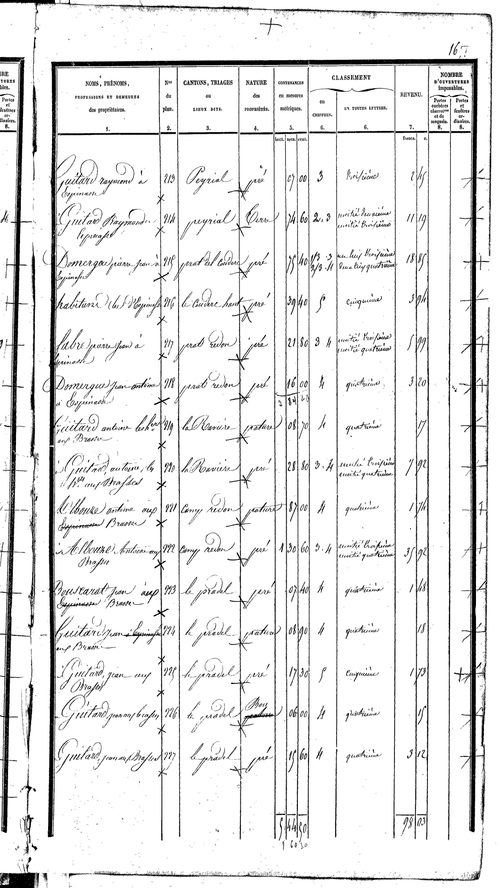 16
NOMS, PRÉNOMS, PROFESSIONS ET DEMEURES des propriétaires. 1.
Nos du plan. 2.
CANTONS, TRIAGES ou LIEUX DITS. 3.
NATURE des 4.
CONTENANCES en mesures métriques. 5.
CLASSEMENT
en CHIFFRES. 6.
EN TOUTES LETTRES. 6.
REVENU. 7.
NOMBRE D'OUVERTURES imposables.
Portes et fenêtres ordinaires. 8.
hect. ares. cent.
francs. c.
Guitard raymond à Espinasse 213 Peyrial pré 07 00 3 troisième 2 45
Guitard Raymond Espinasse 214 peyrial Terre 74 60 2.3 moitié deuxième moitié troisième 11 19
Domergue pierre jean à Espinasse 215 prat del Couderc pré 75 40 1/3 3 2/3 4 un tiers troisième deux tiers quatrième 18 85
habitans (les) d'Espinasse 216 le Couderc haut pré 39 40 5 cinquième 3 94
fabre pierre jean à Espinasse 217 prat redon pré 21 80 3 4 moitié troisième moitié quatrième 5 99
Domergue jean antoine à Espinasse 218 prat redon pré 16 00 4 quatrième 3 20
Guitard antoine aux Brasses 219 la Ravière pature 08 70 4 quatrième 17
Guitard antoine aux Brasses 220 la Ravière pré 28 80 3.4 moitié troisième moitié quatrième 7 92
Albouze antoine aux Espinasse Brasses 221 Camp redon pature 87 00 4 quatrième 1 74
Albouze Antoine aux Brasses 222 Camp redon pré 1 30 60 3.4 moitié troisième moitié quatrième 35 92
Bouscarat jean aux Espinasse Brasses 223 le pradel pré 07 40 4 quatrième 1 48
Guitard jean à Espinasse aux Brasses 224 le pradel pature 08 90 4 quatrième 18
Guitard, jean aux Brasses 225 le pradel pré 17 30 5 cinquième 1 73
Guitard jean aux brasses 226 le pradel Bois pature 06 00 4 quatrième 15
Guitard, jean aux Brasses 227 le pradel pré 15 60 4 quatrième 3 12
5 44 50 98 03